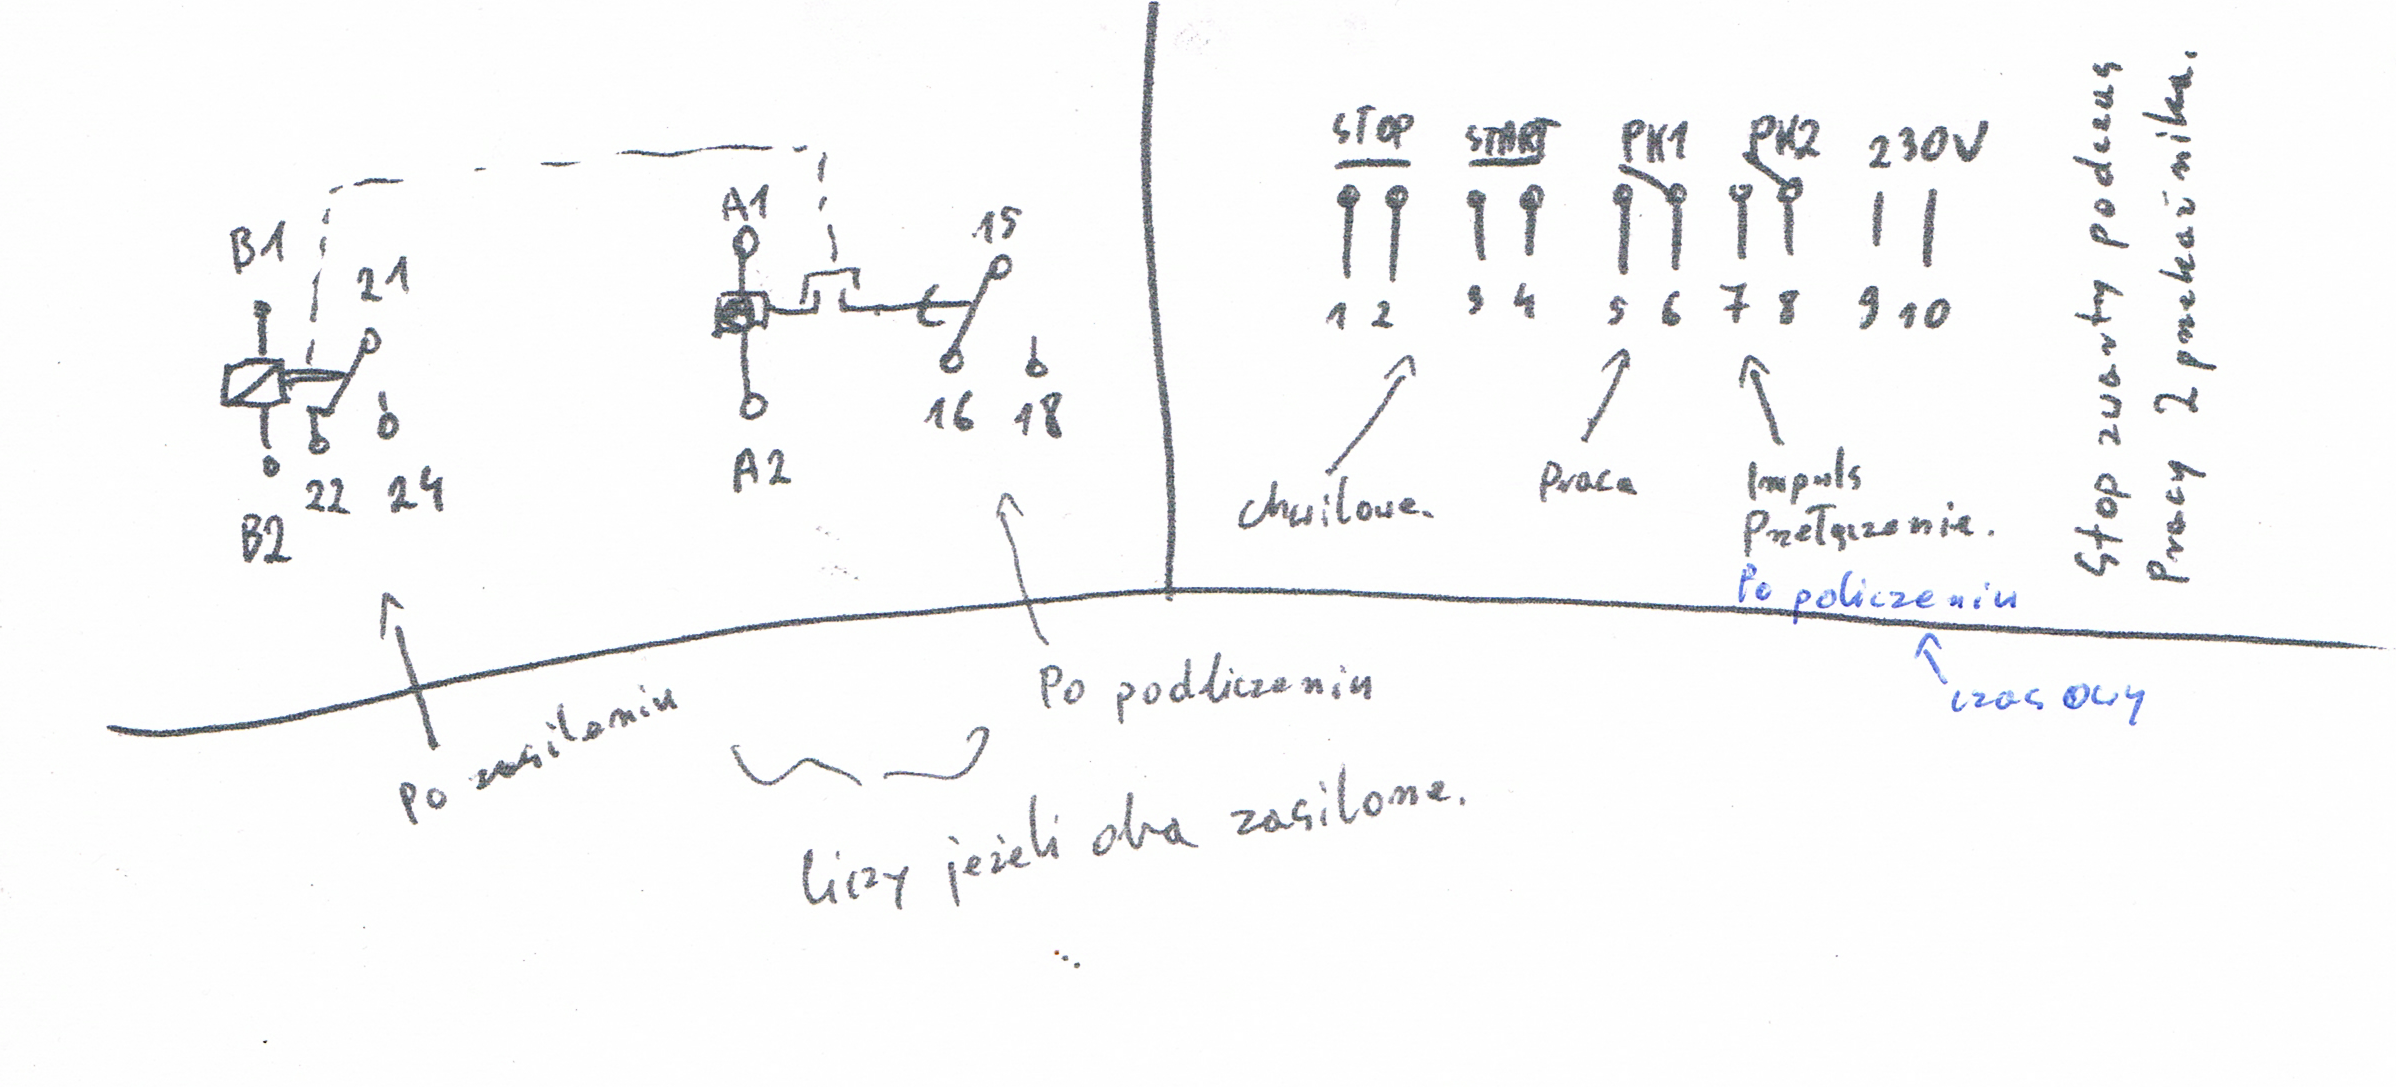 B1
21
B2
22 24
A1
15
16 18
A2
Po zasileniu
Po podliczeniu
liczy jeżeli oba zasilone.
STOP START PK1 PK2 230V
1 2 3 4 5 6 7 8 9 10
chwilowe.
Praca
Impuls
Przełączenie.
Po policzeniu
czasowy
Stop zwarty podczas
Pracy 2 przekaźnika.